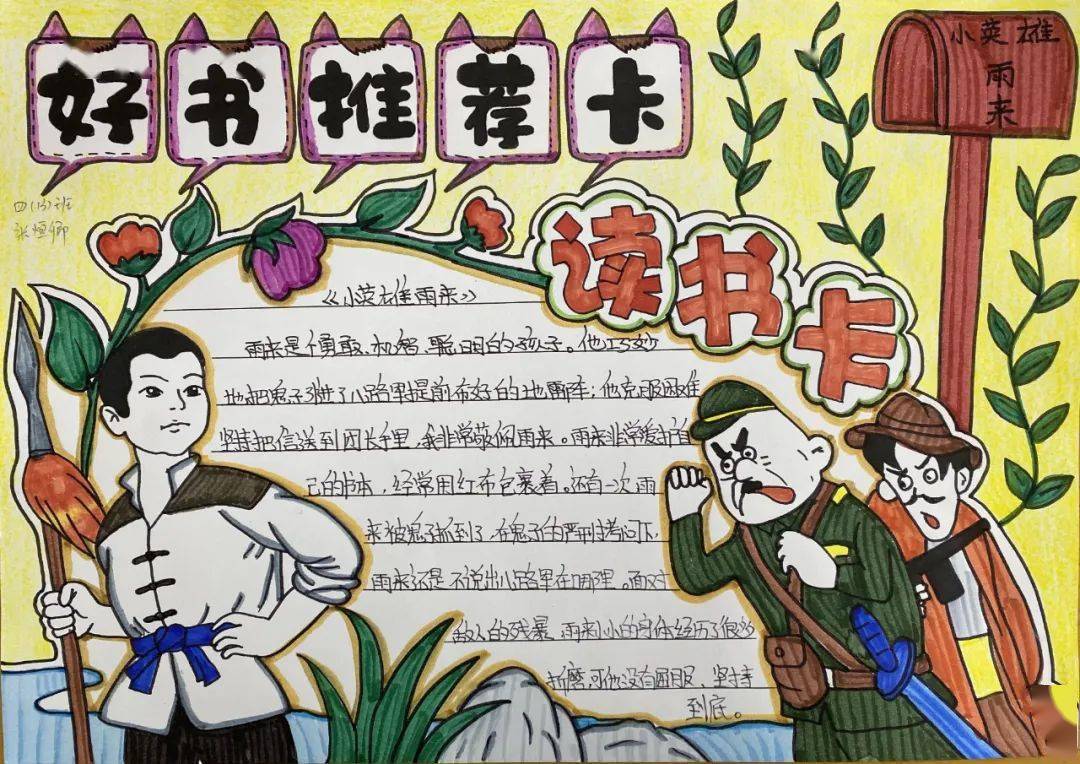 好书推荐卡
小英雄
雨
来
四(13)班
读书卡
《小英雄雨来》
雨来是个勇敢、机智、聪明的孩子。他巧妙
地把鬼子引进了八路军提前布好的地雷阵；他克服困难
坚持把信送到团长手里，我非常敬佩雨来。雨来非常爱护自
己的书本，经常用红布包裹着。还有一次雨
来被鬼子抓到了，在鬼子的严刑拷问下，
雨来还是不说出八路军在哪里。面对
敌人的残暴，雨来小小的身体经历了很多
折磨，可他没有屈服，坚持
到底。